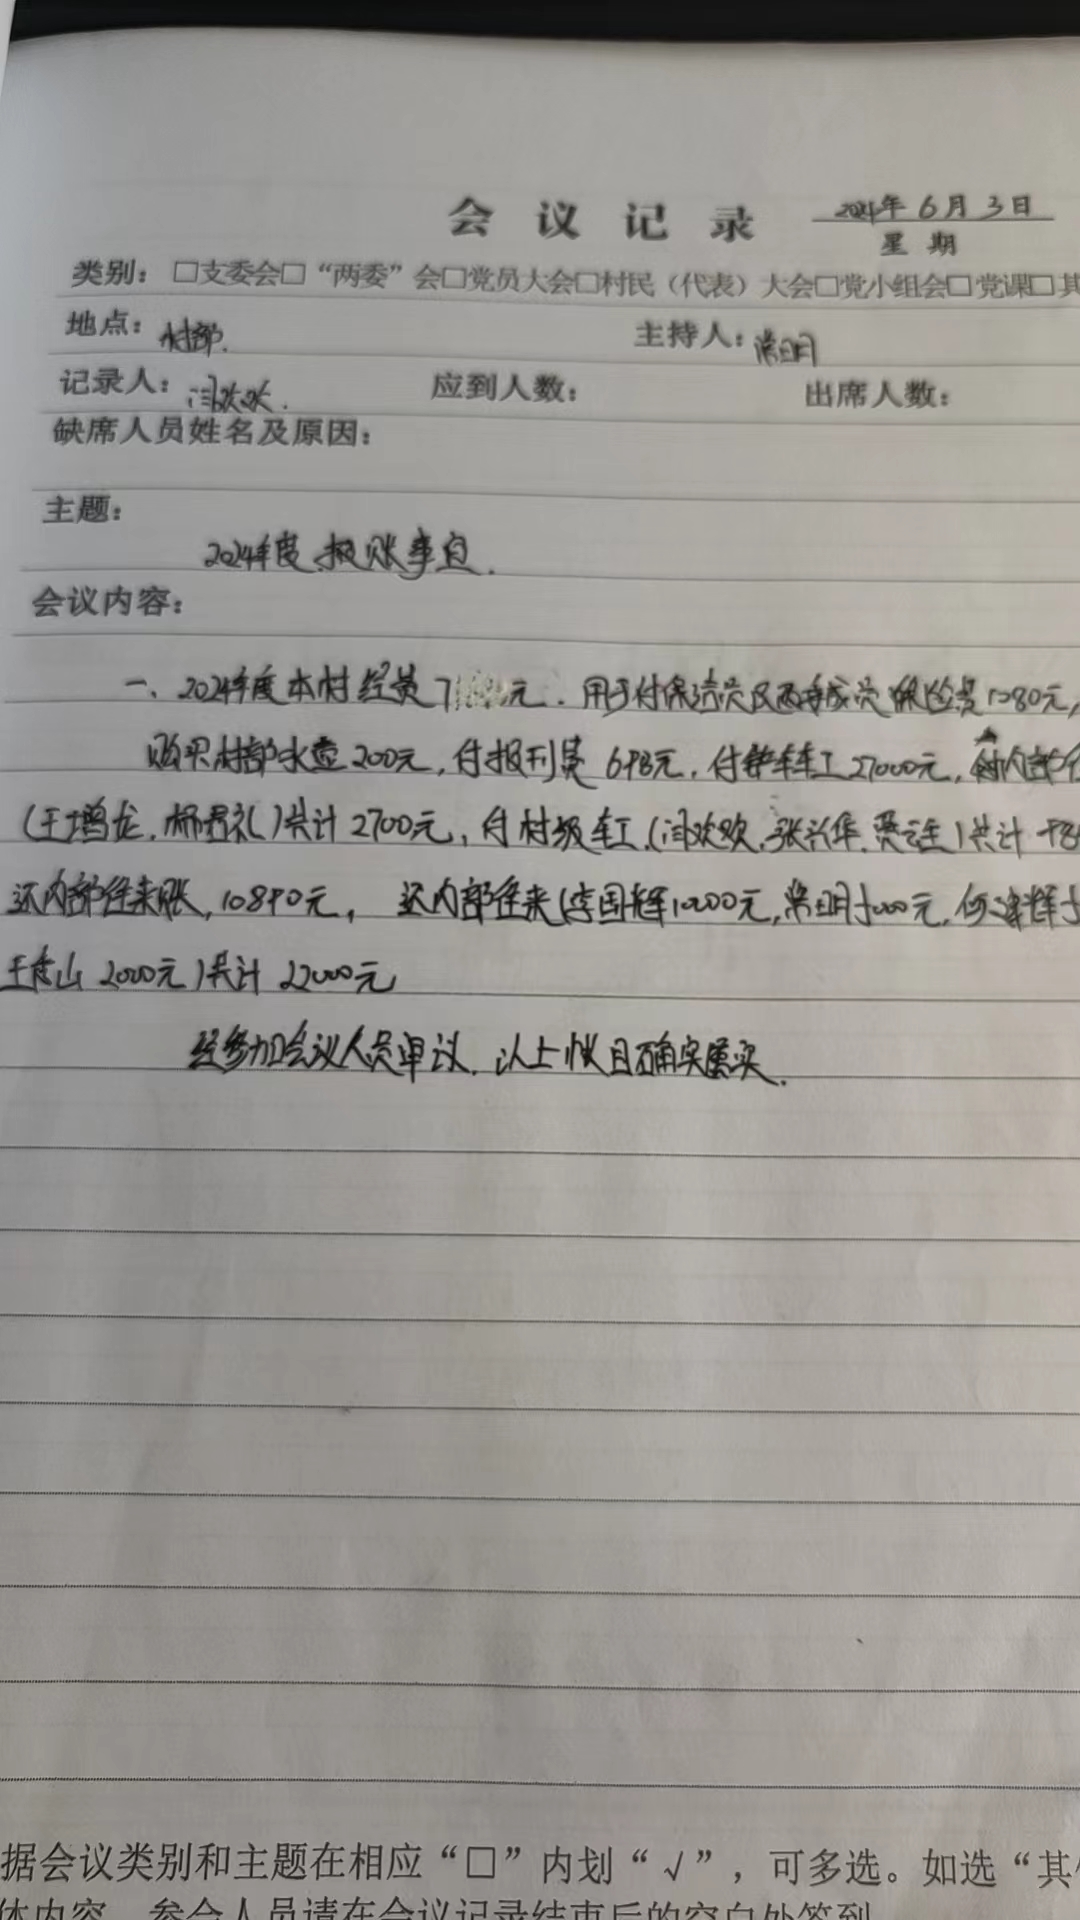 会议记录 2024年6月3日
星期
类别：□支委会□“两委”会□党员大会□村民（代表）大会□党小组会□党课□其
地点：村部. 主持人：常明
记录人：闫欢欢. 应到人数： 出席人数：
缺席人员姓名及原因：
主题：
2024年度报账事宜.
会议内容：
一、2024年度本村经费7 元.用于付保洁员及两委成员保险费1080元,
购买村部水壶200元,付报刊费698元,付 车工27000元, 内部
(王增龙.杨君礼)共计2700元,付村级车工(闫欢欢.张兴华. )共计
还内部往来账,10890元, 还内部往来(李国辉10000元,常明5000元,何 辉
王 山2000元)共计22000元
经参加会议人员审议.以上帐目确实属实.
据会议类别和主题在相应“□”内划“√”，可多选。如选“其
体内容。参会人员请在会议记录结束后的空白处签到